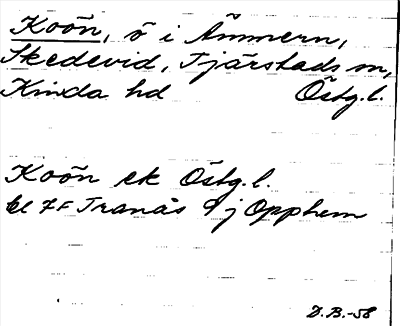 Koön, ö i Ämmern,
Skedevid, Tjärstads sn,
Kinda hd Östg.l.
Koön ek Östg.l.
bl 7F Tranås 9j Opphem
D.B.-58